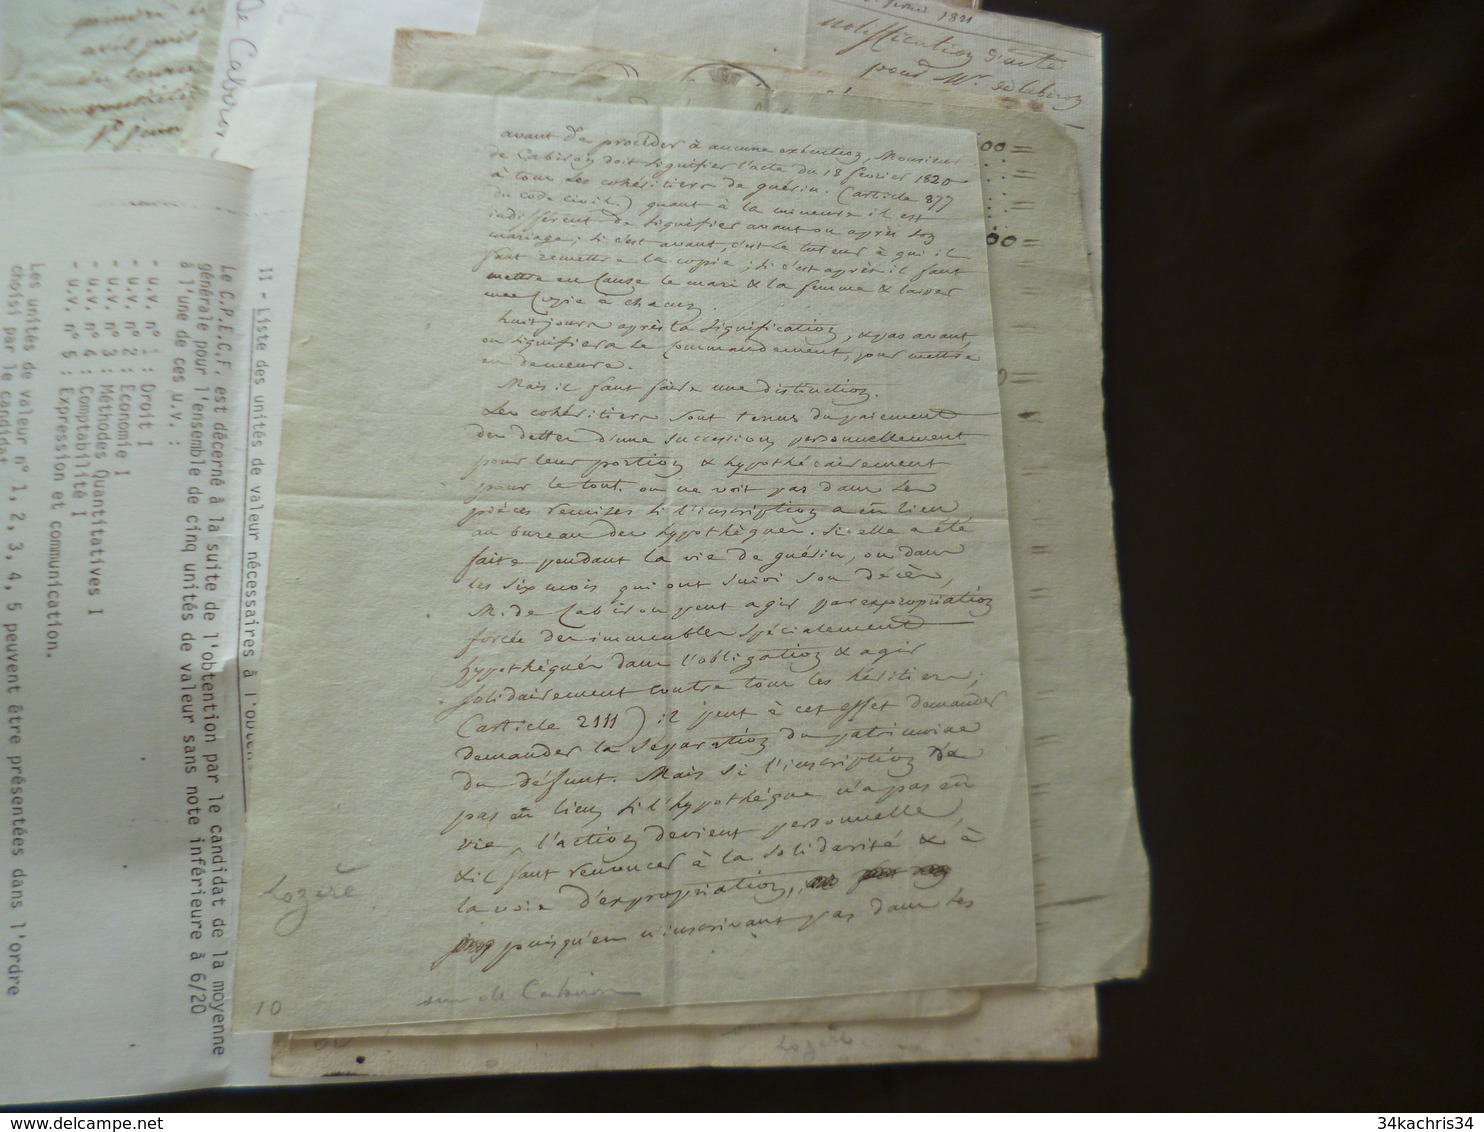 février 1821
notification d'acte
pour Mr de Cabiron
de Cabiron
avant de procéder à aucune exécution, Monsieur
de Cabiron doit signifier l'acte du 18 février 1820
à tous les cohéritiers de guérin. (article 877
du code civil.) quant à la mineure il est
indifférent de signifier avant ou après son
mariage; si c'est avant, c'est le tuteur à qui il
faut remettre la copie; si c'est après il faut
mettre en cause le mari & la femme & laisser
une copie à chacun.
huit jours après la signification, & pas avant,
on signifiera le commandement, pour mettre
en demeure.
Mais il faut faire une distinction.
Les cohéritiers sont tenus du paiement
des dettes d'une succession personnellement
pour leur portion & hypothécairement
pour le tout. on ne voit pas dans les
pièces remises si l'inscription a eu lieu
au bureau des hypothèques. Si elle a été
faite pendant la vie de guérin, ou dans
les six mois qui ont suivi son décès,
M. de Cabiron peut agir par expropriation
forcée des immeubles spécialement
hypothéqués dans l'obligation & agir
solidairement contre tous les héritiers;
(article 2111) il peut à cet effet demander
demander la séparation du patrimoine
du défunt. Mais si l'inscription n'a
pas eu lieu si l'hypothèque n'a pas eu
vie, l'action devient personnelle,
& il faut renoncer à la solidarité & à
la voie d'expropriation,
puisqu'en n'inscrivant pas dans les
Lozère
10
de Cabiron
Lozère
II - Liste des unités de valeur nécessaires à l'obten
Le C.P.E.C.F. est décerné à la suite de l'obtention par le candidat de la moyenne
générale pour l'ensemble de cinq unités de valeur sans note inférieure à 6/20
à l'une de ces u.v. :
- u.v. n° 1 : Droit I
- u.v. n° 2 : Economie I
- u.v. n° 3 : Méthodes Quantitatives I
- u.v. n° 4 : Comptabilité I
- u.v. n° 5 : Expression et communication.
Les unités de valeur n° 1, 2, 3, 4, 5 peuvent être présentées dans l'ordre
choisi par le candidat
34kachris34
delcampe.net